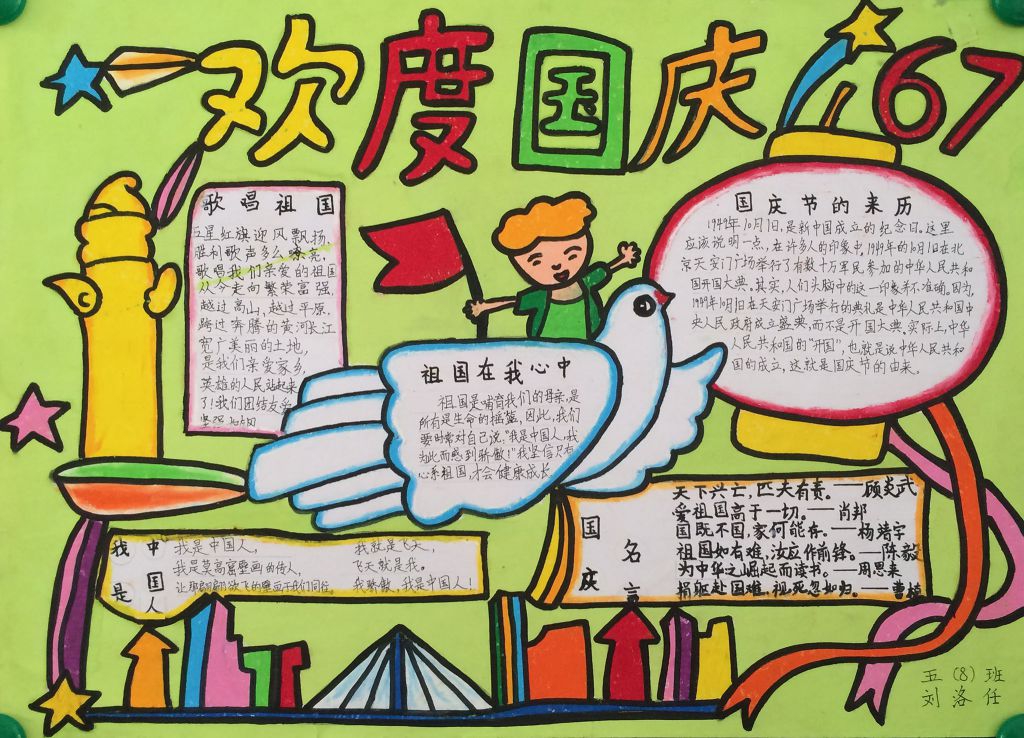 欢度国庆67
歌唱祖国
五星红旗迎风飘扬,
胜利歌声多么嘹亮,
歌唱我们亲爱的祖国
从今走向繁荣富强,
越过高山,越过平原
跨过奔腾的黄河长江
宽广美丽的土地,
是我们亲爱家乡,
英雄的人民站起来
了!我们团结友爱
国庆节的来历
1949年10月1日,是新中国成立的纪念日。这里
应该说明一点,在许多人的印象中,1949年的10月1日在北
京天安门广场举行了有数十万军民参加的中华人民共和
国开国大典。其实,人们头脑中的这一印象并不准确。因为,
1949年10月1日在天安门广场举行的典礼是中华人民共和国中
央人民政府成立盛典,而不是开国大典。实际上,中华
人民共和国的"开国",也就是说中华人民共和
国的成立,这就是国庆节的由来。
祖国在我心中
祖国是哺育我们的母亲,是
所有是生命的摇篮,因此,我们
要时常对自己说:"我是中国人,我
为此而感到骄傲!"我坚信只有
心系祖国,才会健康成长
国庆
名言
天下兴亡,匹夫有责。——顾炎武
爱祖国高于一切。——肖邦
国既不国,家何能存。——杨靖宇
祖国如有难,汝应作前锋。——陈毅
为中华之崛起而读书。——周恩来
捐躯赴国难,视死忽如归。——曹植
我是
中国人
我是中国人,
我是莫高窟壁画的传人,
让那翩翩欲飞的壁画于我们同往。
我就是飞天,
飞天就是我。
我骄傲,我是中国人!
五(8)班
刘洛任